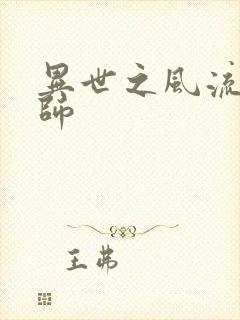 異世之風流
師
王弗